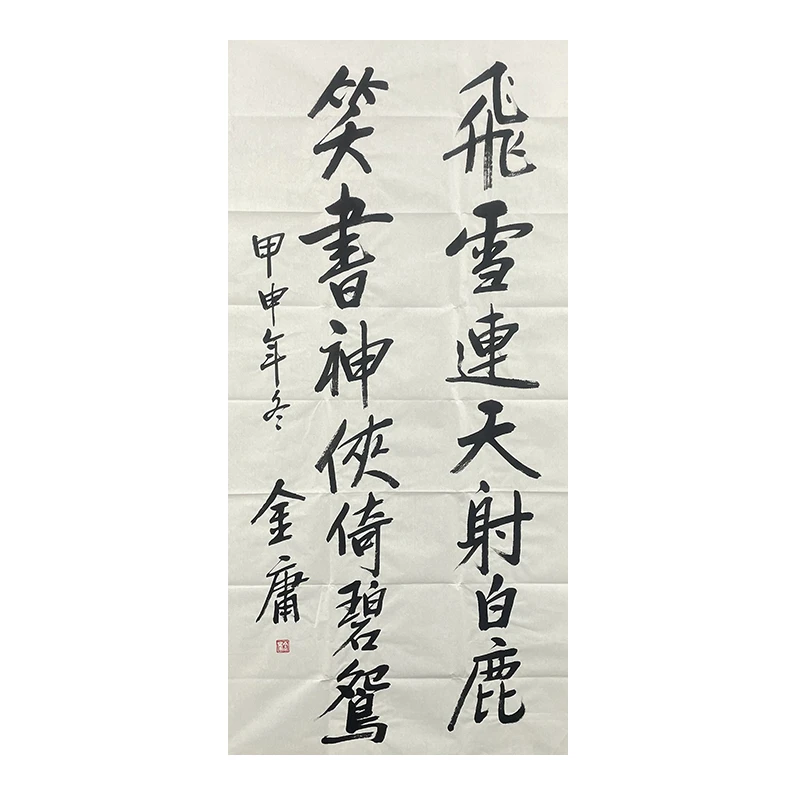 飛雪連天射白鹿
笑書神俠倚碧鴛
甲申年冬
金庸